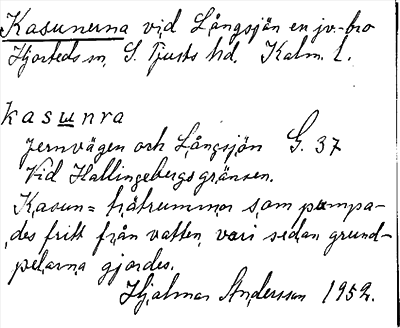 Kasunerna vid Långsjön en jv.-bro
Hjorteds sn, S. Tjusts hd, Kalm. l.
kasunra
Jernvägen och Långsjön G. 37
Vid Hallingebergs gränsen.
Kasun = trätrummor som pumpa-
des fritt från vatten, vari sedan grund-
pelarna gjordes.
Hjalmar Andersson 1952.